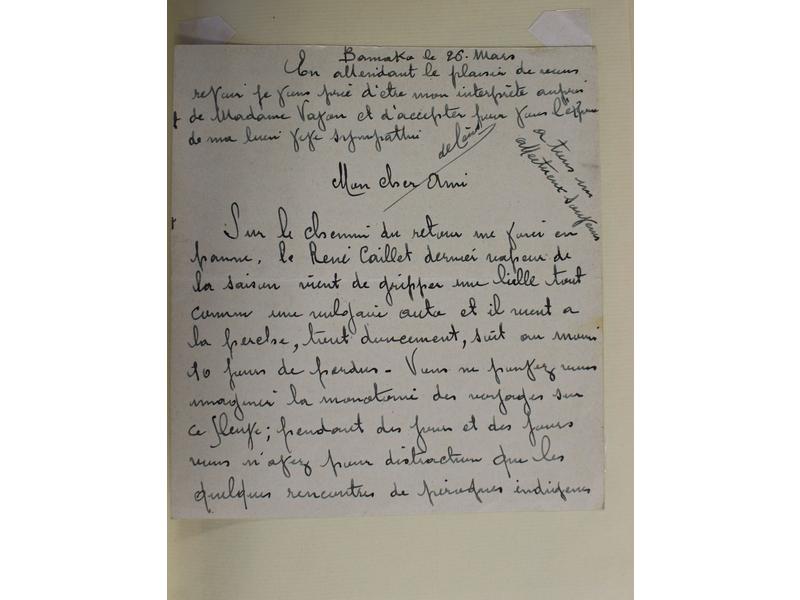 Bamako le 26 Mars
En attendant le plaisir de vous
revoir je vous prie d'être mon interprète auprès
de Madame Vazou et d'accepter pour vous
de ma bien vive sympathie
a tous un
affectueux souvenir
Mon cher Ami
Sur le chemin du retour me voici en
panne, le René Caillet dernier vapeur de
la saison vient de gripper une bielle tout
comme une vulgaire auto et il vient a
la perche, tout doucement, soit au moins
10 jours de perdus - Vous ne pouvez vous
imaginer la monotonie des voyages sur
ce fleuve; pendant des jours et des jours
vous n'avez pour distraction que les
quelques rencontres de pirogues indigenes